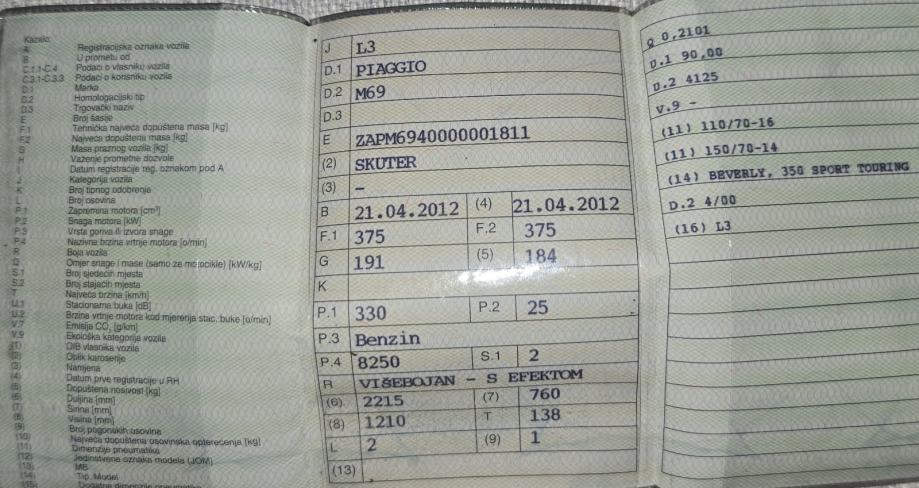 Kazalo:
A Registracijska oznaka vozila
B U prometu od
C.1.1-C.4 Podaci o vlasniku vozila
C.3.1-C.3.3 Podaci o korisniku vozila
D.1 Marka
D.2 Homologacijski tip
D.3 Trgovački naziv
E Broj šasije
F.1 Tehnička najveća dopuštena masa [kg]
F.2 Najveća dopuštena masa [kg]
G Masa praznog vozila [kg]
H Važenje prometne dozvole
I Datum registracije reg. oznakom pod A
J Kategorija vozila
K Broj tipnog odobrenja
L Broj osovina
P.1 Zapremina motora [cm³]
P.2 Snaga motora [kW]
P.3 Vrsta goriva ili izvora snage
P.4 Nazivna brzina vrtnje motora [o/min]
R Boja vozila
Q Omjer snage i mase (samo za motocikle) [kW/kg]
S.1 Broj sjedećih mjesta
S.2 Broj stajaćih mjesta
T Najveća brzina [km/h]
U.1 Stacionarna buka [dB]
U.2 Brzina vrtnje motora kod mjerenja stac. buke [o/min]
V.7 Emisija CO₂ [g/km]
V.9 Ekološka kategorija vozila
(1) OIB vlasnika vozila
(2) Oblik karoserije
(3) Namjena
(4) Datum prve registracije u RH
(5) Dopuštena nosivost [kg]
(6) Duljina [mm]
(7) Širina [mm]
(8) Visina [mm]
(9) Broj pogonskih osovina
(10) Najveća dopuštena osovinska opterećenja [kg]
(11) Dimenzije pneumatika
(12) Jedinstvena oznaka modela (JOM)
(13) MB
(14) Tip. Model
J L3
D.1 PIAGGIO
D.2 M69
D.3
E ZAPM6940000001811
(2) SKUTER
(3) –
B 21.04.2012 (4) 21.04.2012
F.1 375 F.2 375
G 191 (5) 184
K
P.1 330 P.2 25
P.3 Benzin
P.4 8250 S.1 2
R VIŠEBOJAN – S EFEKTOM
(6) 2215 (7) 760
(8) 1210 T 138
L 2 (9) 1
(13)
Q 0,2101
U.1 90,00
U.2 4125
V.9 –
(11) 110/70-16
(11) 150/70-14
(14) BEVERLY, 350 SPORT TOURING
D.2 4/00
(16) L3